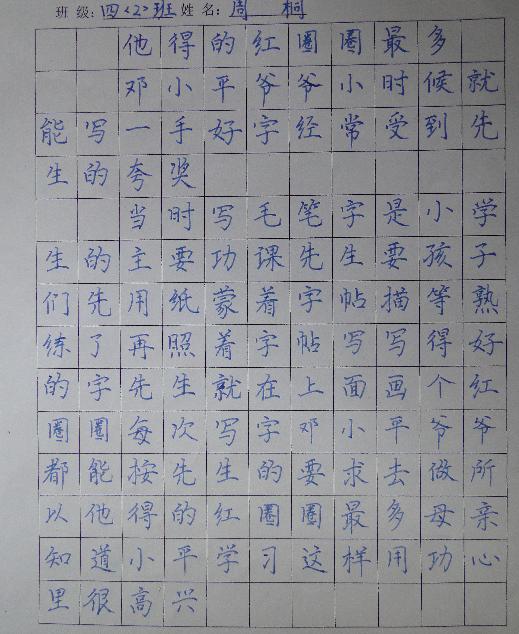 班级:四〈2〉班姓名:周 桐
他得的红圈圈最多
邓小平爷爷小时候就
能写一手好字经常受到先
生的夸奖
当时写毛笔字是小学
生的主要功课先生要孩子
们先用纸蒙着字帖描等熟
练了再照着字帖写写得好
的字先生就在上面画个红
圈圈每次写字邓小平爷爷
都能按先生的要求去做所
以他得的红圈圈最多母亲
知道小平学习这样用功心
里很高兴